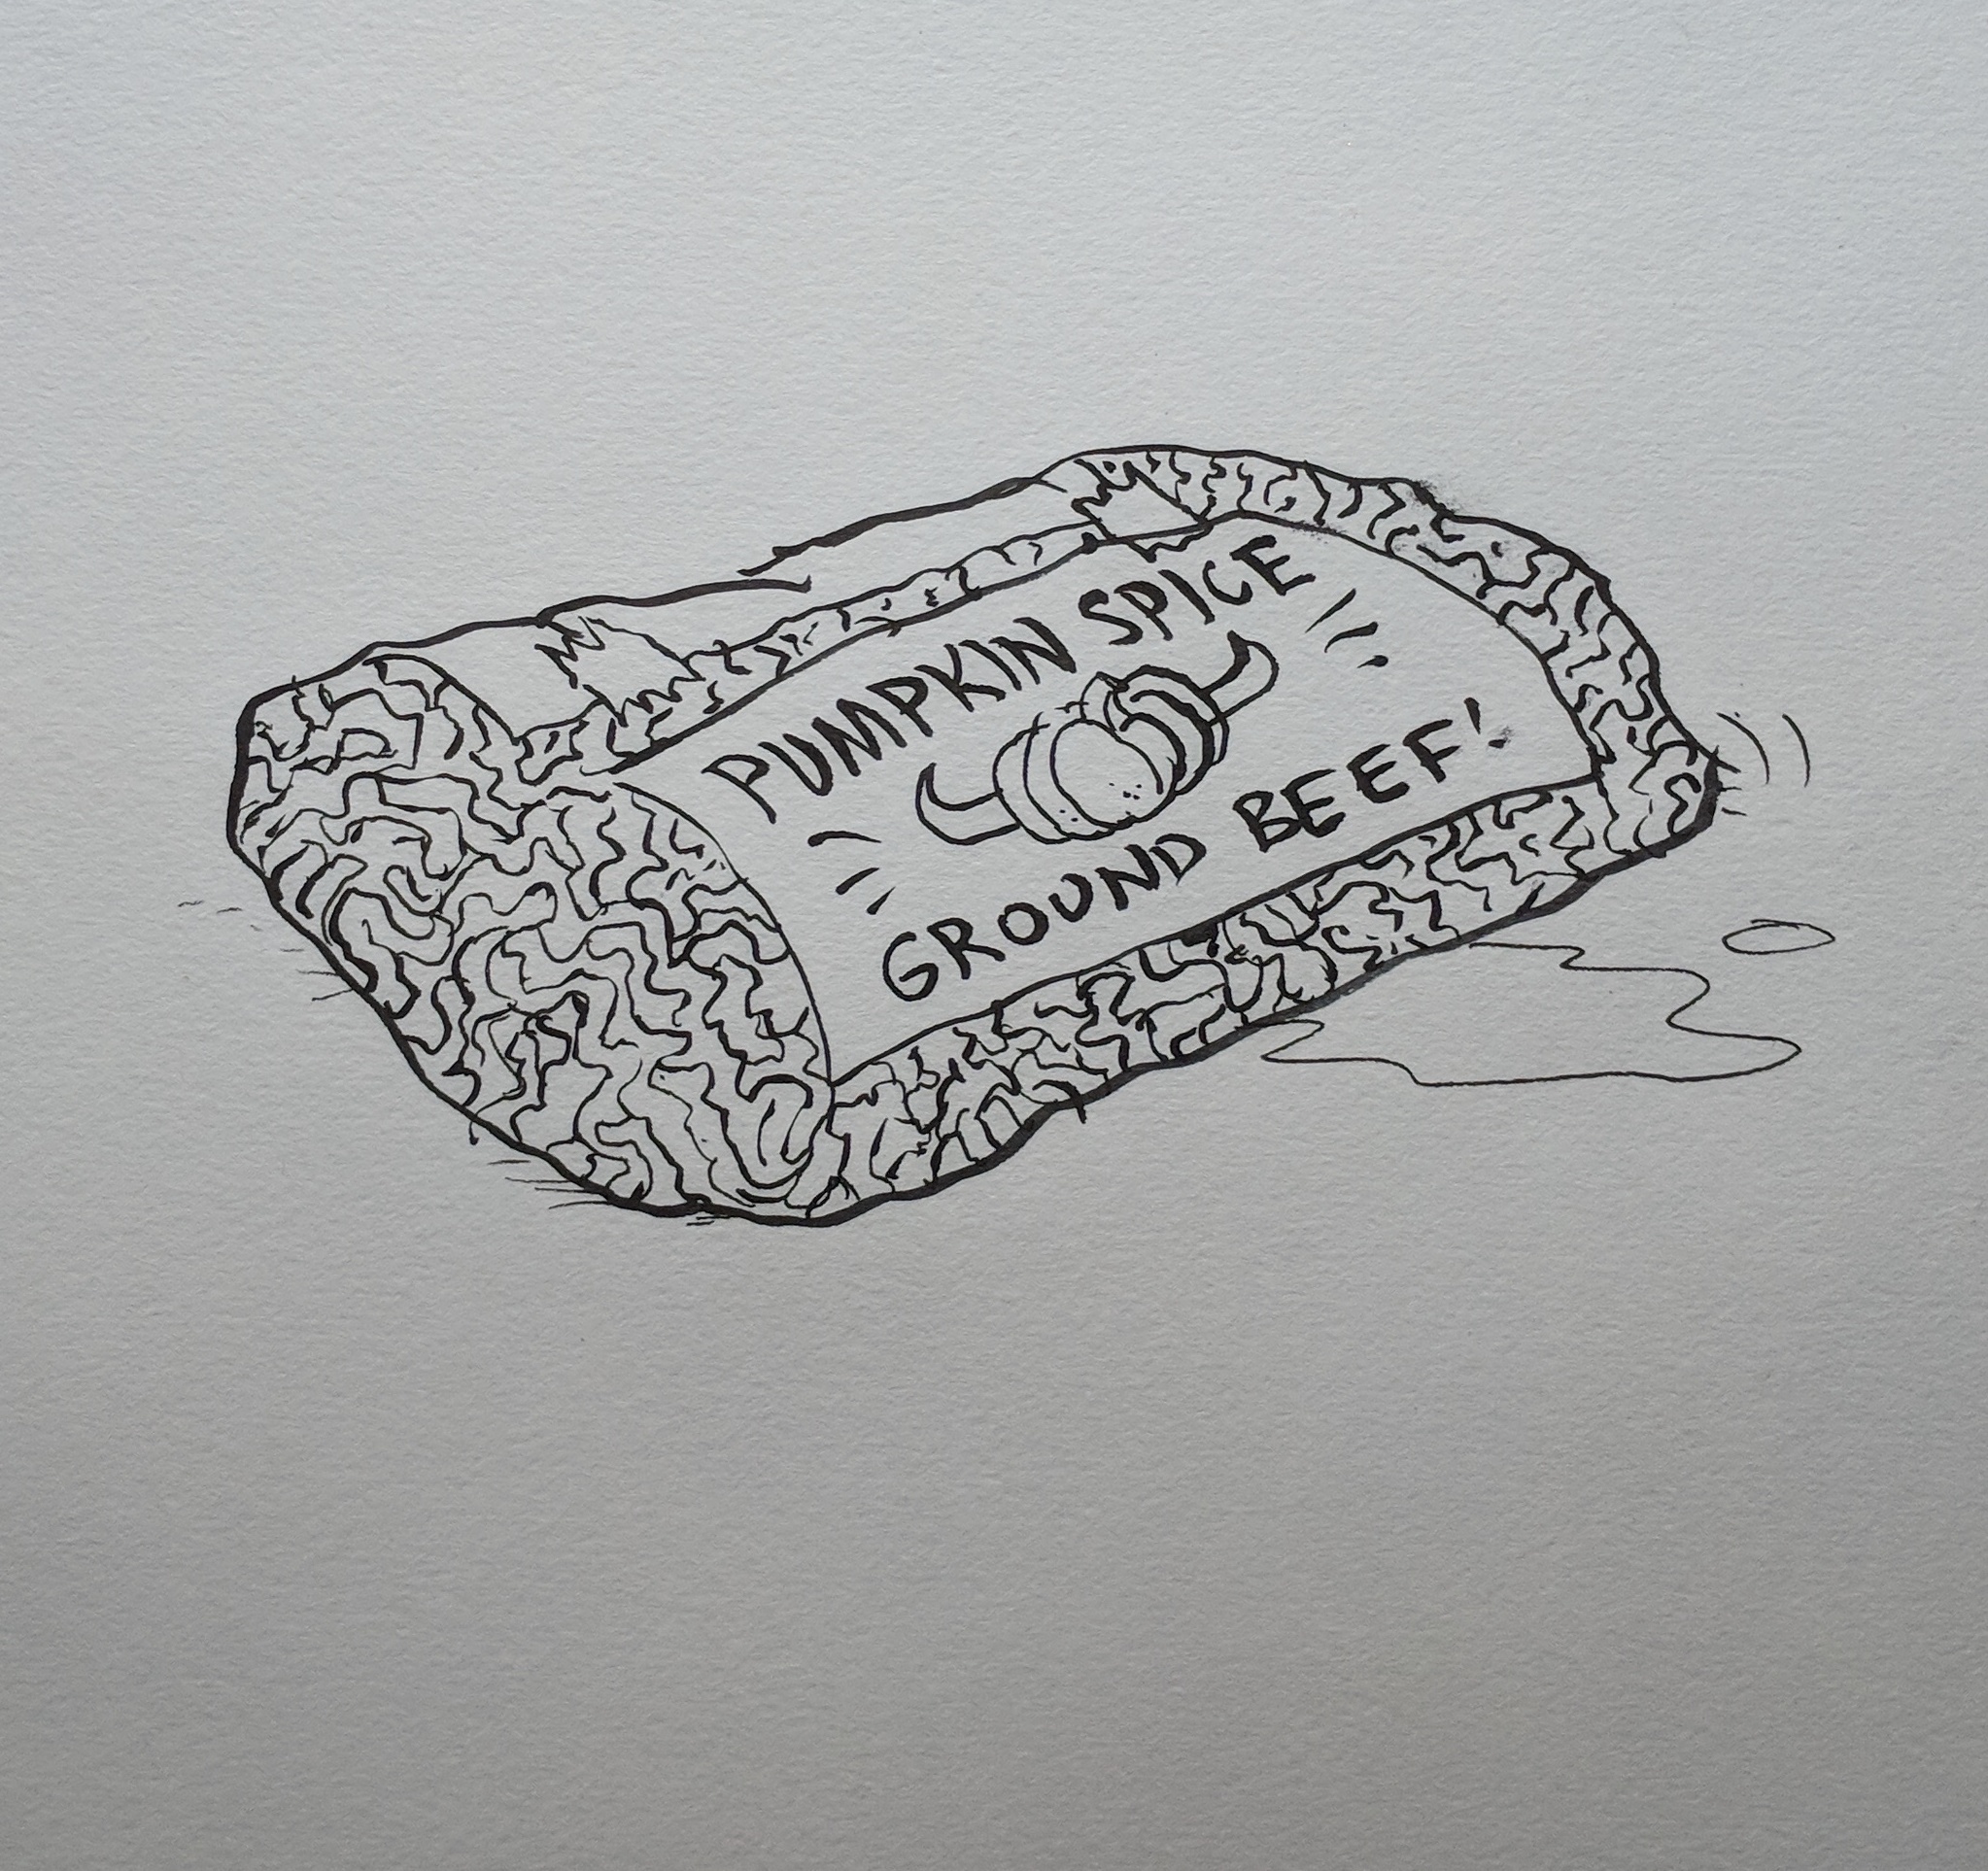 PUMPKIN SPICE
GROUND BEEF!